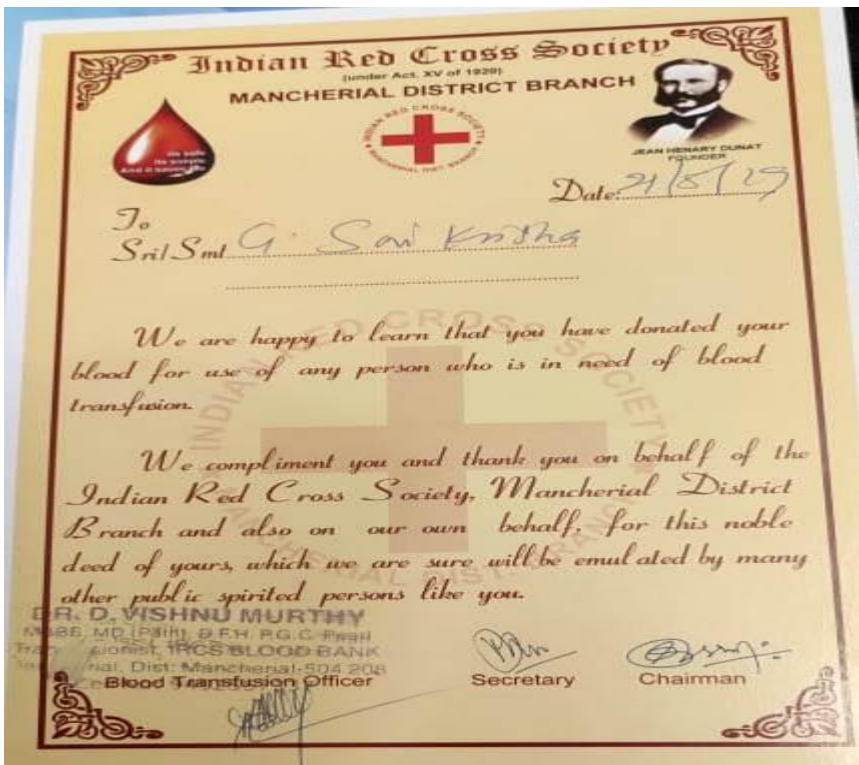 Indian Red Cross Society
(under Act. XV of 1920)
MANCHERIAL DISTRICT BRANCH
INDIAN RED CROSS SOCIETY
MANCHERIAL DIST. BRANCH
JEAN HENARY DUNAT
FOUNDER
Date:
To
Sri/Smt G. Sai Krishna
We are happy to learn that you have donated your
blood for use of any person who is in need of blood
transfusion.
We compliment you and thank you on behalf of the
Indian Red Cross Society, Mancherial District
Branch and also on our own behalf, for this noble
deed of yours, which we are sure will be emulated by many
other public spirited persons like you.
INDIAN RED CROSS SOCIETY
MANCHERIAL DIST. BRANCH
DR. D. VISHNU MURTHY
MBBS, MD
IRCS BLOOD BANK
Dist: Mancherial-504 208
Blood Transfusion Officer
Secretary
Chairman